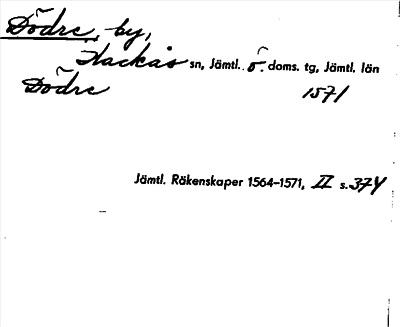 Dödre, by,
Hackås sn, Jämtl. ö. doms. tg, Jämtl. län
Dödre 1571
Jämtl. Räkenskaper 1564–1571, II s. 374